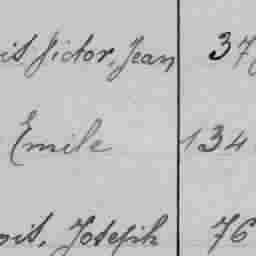 Victor, Jean 37
Emile 134
Joseph 76